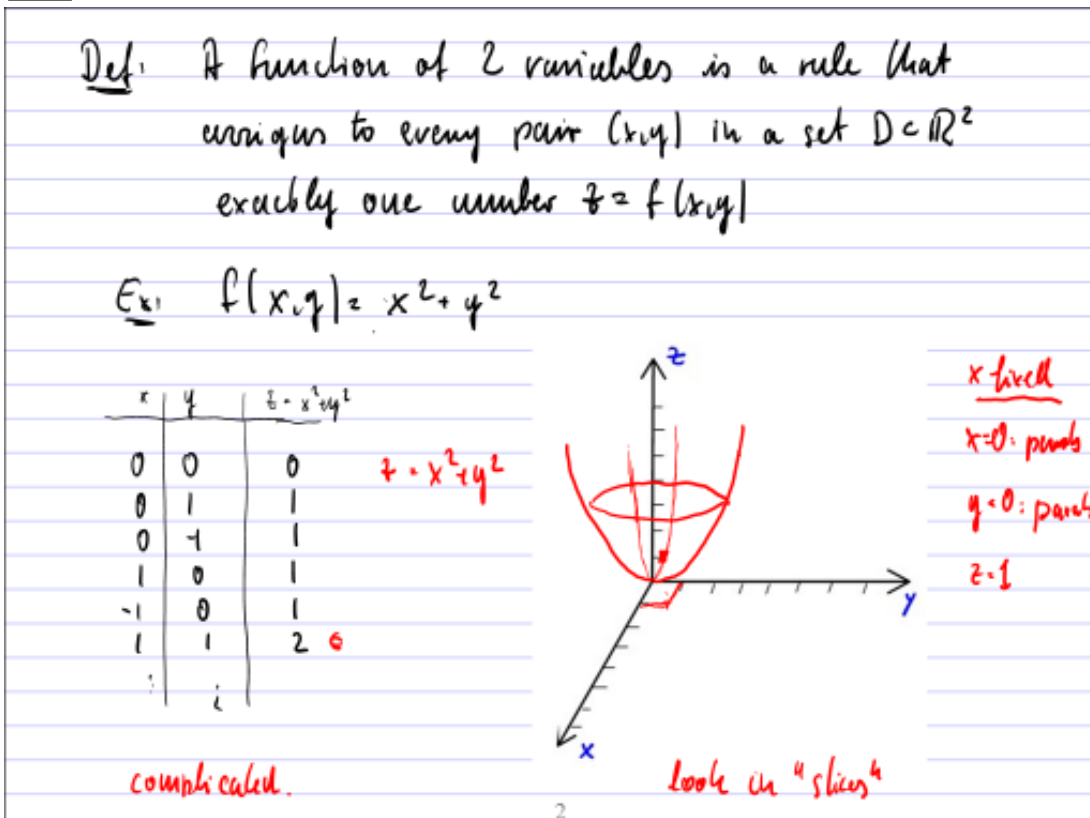 Def: A function of 2 variables is a rule that
assigns to every pair (x,y) in a set D ⊂ ℝ²
exactly one number z = f(x,y)
Ex: f(x,y) = x² + y²
x y z = x²+y²
0 0 0
0 1 1
0 -1 1
1 0 1
-1 0 1
1 1 2
⋮ ⋮
z = x²+y²
complicated.
z
y
x
look in "slices"
x fixed
x=0: parab
y=0: parab
z=1
2